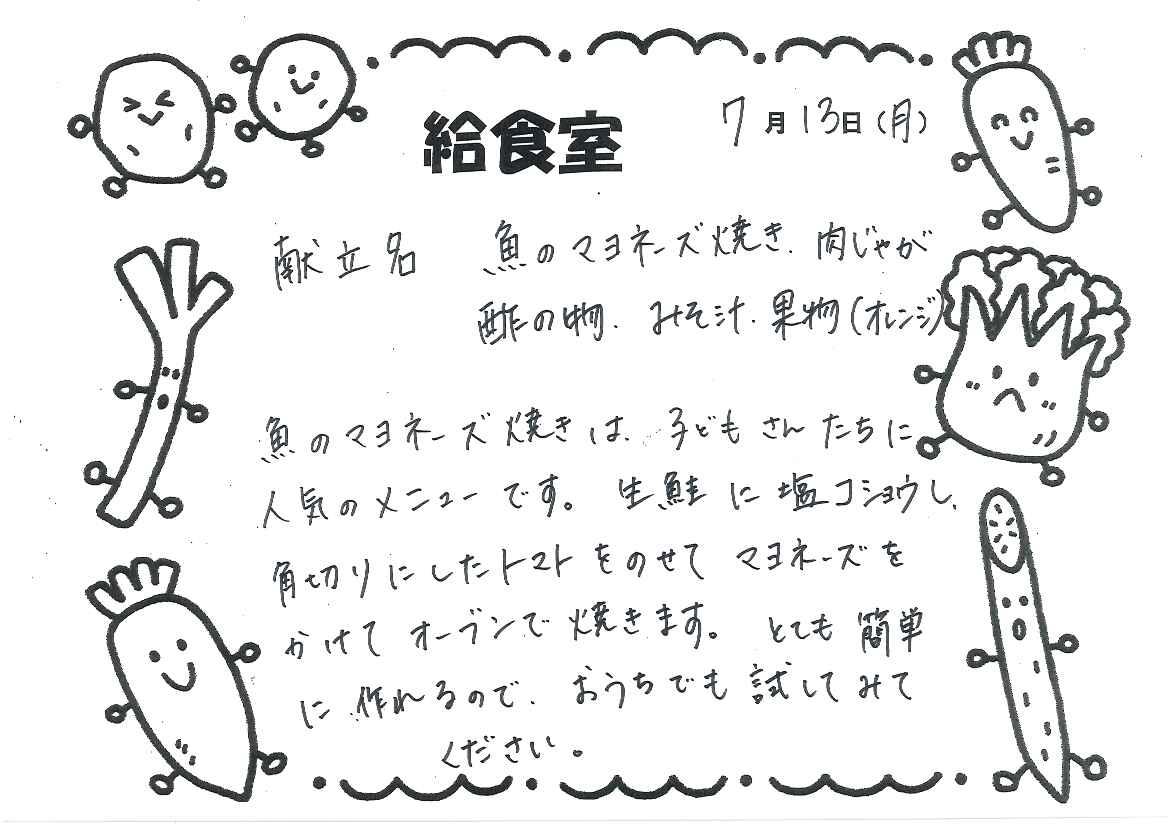 給食室
7月13日(月)
献立名 魚のマヨネーズ焼き、肉じゃが
酢の物、みそ汁、果物(オレンジ)
魚のマヨネーズ焼きは、子どもさんたちに
人気のメニューです。生鮭に塩コショウし、
角切りにしたトマトをのせてマヨネーズを
かけてオーブンで焼きます。とても簡単
に作れるので、おうちでも試してみて
ください。